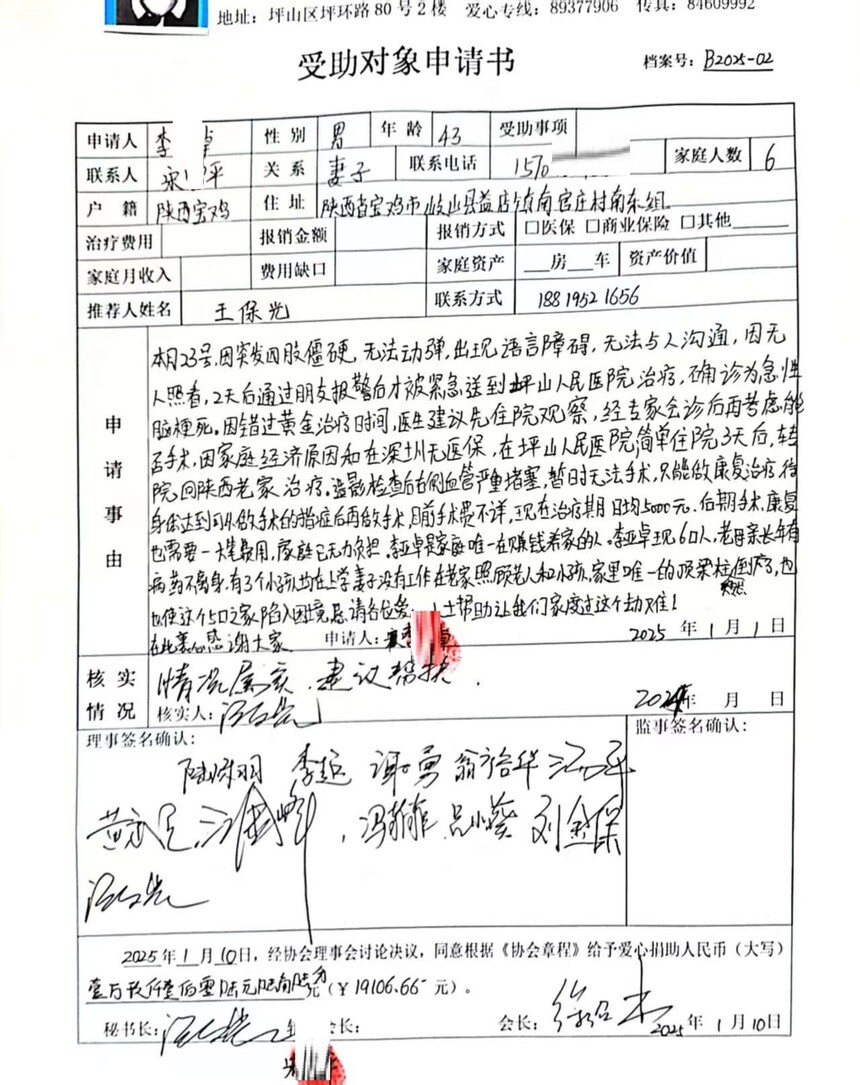 地址：坪山区坪环路80号2楼 爱心专线：89377906 传真：84609992
受助对象申请书
档案号：B2025-02
申请人 李 性别 男 年龄 43 受助事项
联系人 宋 平 关系 妻子 联系电话 1570 家庭人数 6
户籍 陕西宝鸡 住址 陕西省宝鸡市岐山县益店镇南官庄村南东组
治疗费用 报销金额 报销方式 □医保 □商业保险 □其他
家庭月收入 费用缺口 家庭资产 __房__车 资产价值
推荐人姓名 王保光 联系方式 18819521656
申请事由
本月23号,因突发四肢僵硬,无法动弹,出现语言障碍,无法与人沟通,因无
人照看,2天后通过朋友报警后才被紧急送到坪山人民医院治疗,确诊为急性
脑梗死。因错过黄金治疗时间,医生建议先住院观察,经专家会诊后再考虑能
否手术,因家庭经济原因和在深圳无医保,在坪山人民医院简单住院3天后,转
院回陕西老家治疗。造影检查后右侧血管严重堵塞,暂时无法手术,只能做康复治疗,待
身体达到可以做手术的指症后再做手术,目前手术费不详,现在治疗期日均5000元.后期手术,康复
也需要一大笔费用,家庭已无力负担。李亚卓是家庭唯一在赚钱养家的人。李亚卓现6口人,老母亲长年有
病药不离身,有3个小孩均在上学妻子没有工作在老家照顾老人和小孩,家里唯一的顶梁柱倒了,也
也使这个5口之家陷入困境,恳请各位爱 士帮助让我们家度过这个劫难!
在此衷心感谢大家 申请人： 2025年1月1日
核实情况
情况属实,建议帮扶.
核实人： 年 月 日
理事签名确认： 监事签名确认：
李超 谢勇 翁裕华
冯菲菲 吕小葵 刘金保
2025年1月10日，经协会理事会讨论决议，同意根据《协会章程》给予爱心捐助人民币（大写）
壹万玖仟壹佰零陆元陆角陆分元（￥19106.66 元）。
秘书长： 会长： 会长：
2025年1月10日